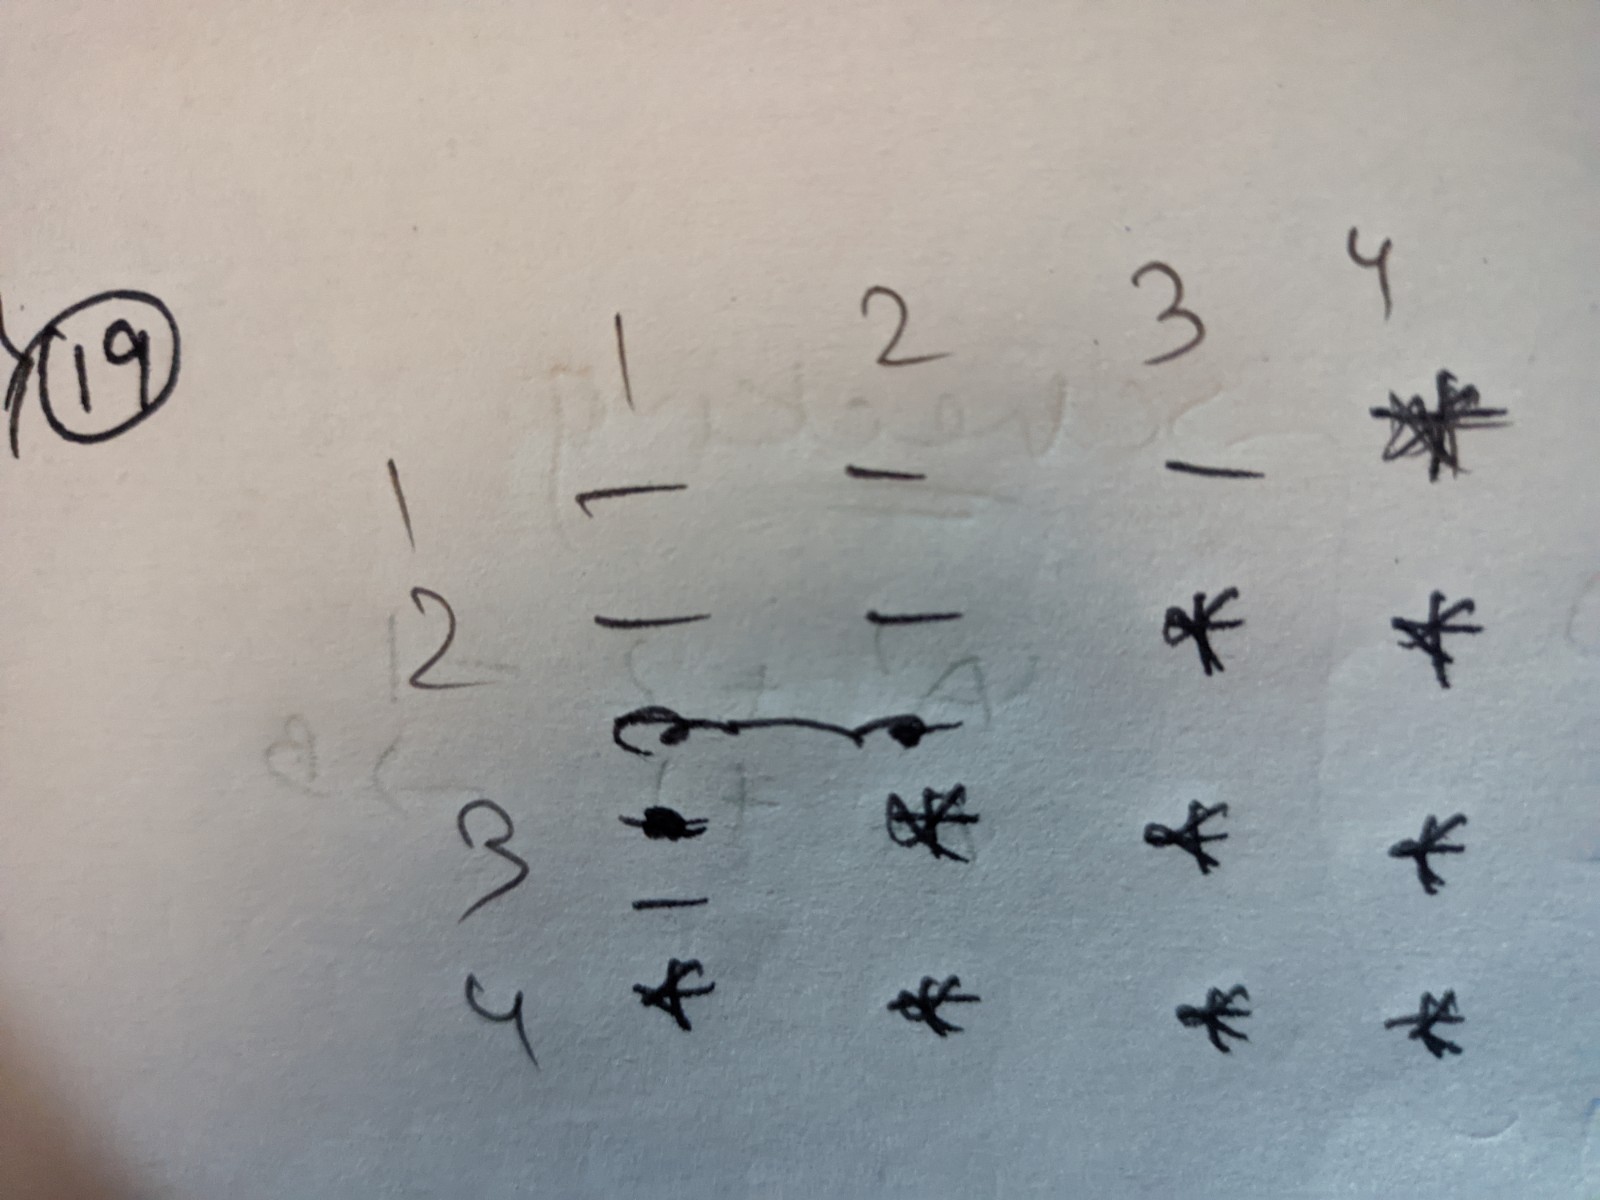 19
1 2 3 4
1 — — — *
2 — — * *
3 * * *
—
4 * * * *